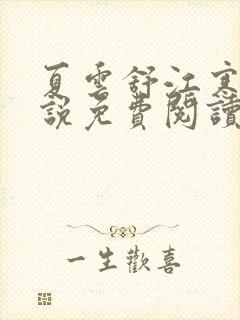 夏雲舒江寒
說免費閱讀
一生歡喜